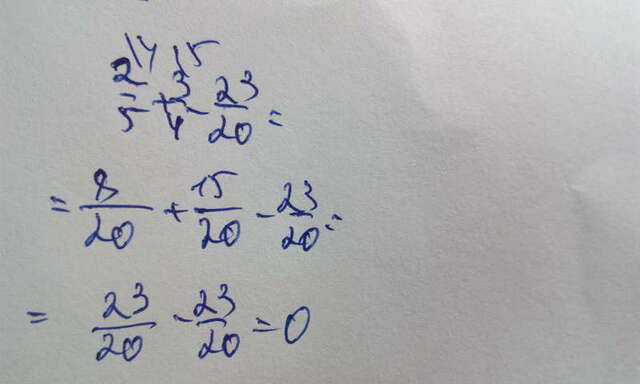 2/5 \4 + 3/4 \5 - 23/20 =
= 8/20 + 15/20 - 23/20 =
= 23/20 - 23/20 = 0